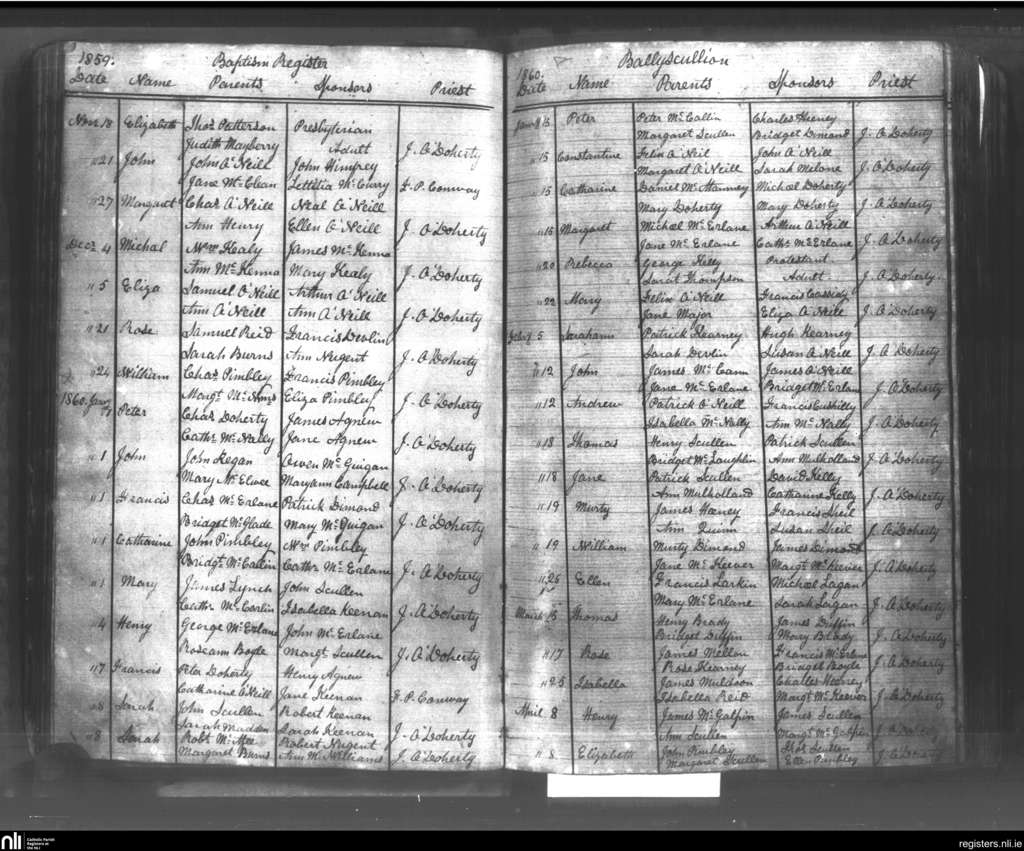 1859.
Baptism Register
Date Name Parents Sponsors Priest
Novr. 18 Elizabeth Thos Patterson Presbyterian
Judith Mayberry Adult J. O'Doherty
" 21 John John O'Neill John
Jane McClean Lettitia McCurry F. P. Conway
" 27 Margaret Chas O'Neill Neal O'Neill
Ann Henry Ellen O'Neill J. O'Doherty
Decr 4 Michal Wm Healy James McKenna
Ann McKenna Mary Healy J. O'Doherty
" 5 Eliza Samuel O'Neill Arthur O'Neill
Ann O'Neill Ann O'Neill J. O'Doherty
" 21 Rose Samuel Reid Francis Devlin
Sarah Burns Ann Nugent J. O'Doherty
" 24 William Chas Pimbley Francis Pimbley
Margt. Eliza Pimbley J. O'Doherty
1860. Jany 1 Peter Chas Doherty James Agnew
Cathr. McNally Jane Agnew J. O'Doherty
" 1 John John Kegan Owen McGuigan
Mary McElwee Maryann Campbell J. O'Doherty
" 1 Francis Chas McErlane Patrick Dimond
Bridget McGlade Mary McGuigan J. O'Doherty
" 1 Catharine John Pimbley Wm Pimbley
Bridgt. McCallin Cathr. McErlane J. O'Doherty
" 1 Mary James Lynch John Scullen
Cathr McCarlin Isabella Keenan J. O'Doherty
" 4 Henry George McErlane John McErlane
Roseann Boyle Margt. Scullen J. O'Doherty
" 7 Francis Peter Doherty Henry Agnew
Catharine O'Neill Jane Keenan F. P. Conway
" 8 Sarah John Scullen Robert Keenan
Sarah Madden Sarah Keenan J. O'Doherty
" 8 Sarah Robt. McAtee Robert Nugent
Margaret Burns Ann McWilliams J. O'Doherty
Ballyscullion
1860.
Date Name Parents Sponsors Priest
Jany 15 Peter Peter McCallin Charles Heeney
Margaret Scullen Bridget Dimond J. O'Doherty
" 15 Constantine Felix O'Neil John O'Neill
Margaret O'Neill Sarah Melane J. O'Doherty
" 15 Catharine Daniel Michael Doherty
Mary Doherty Mary Doherty J. O'Doherty
" 16 Margaret Michael McErlane Arthur O'Neill
Jane McErlane Cathr McErlane J. O'Doherty
" 20 Rebecca George Kelly Protestant
Sarah Thompson Adult J. O'Doherty.
" 22 Mary Felix O'Neill Francis Cassidy
Jane Major Eliza O'Neill J. O'Doherty
Feby 5 Sarahann Patrick Kearney Hugh Kearney
Sarah Devlin Susan O'Neill J. O'Doherty
" 12 John James McCann James O'Neill
Jane McErlane Bridget McErlane J. O'Doherty
" 12 Andrew Patrick O'Neill Francis Cushilly
Isabella McNally Ann McNally J. O'Doherty
" 18 Thomas Henry Scullen Patrick Scullen
Bridget McLaughlin Ann Mulholland J. O'Doherty
" 18 Jane Patrick Scullen David Kelly
Ann Mulholland Catharine Kelly J. O'Doherty
" 19 Murty James Heeney Francis Sheil
Ann Quinn Susan Sheil J. O'Doherty
" 19 William Murty Dimond James Dimond
Jane McKeever Margt McKeever J. O'Doherty
" 26 Ellen Francis Larkin Michael Lagan
Mary McErlane Sarah Lagan J. O'Doherty
March 15 Thomas Henry Brady James Duffin
Bridget Duffin Mary Brady J. O'Doherty
" 17 Rose James Mellon Francis McErlane
Rose Kearney Bridget Boyle J. O'Doherty
" 25 Isabella James Muldoon Charles Heeney
Isabella Reid Margt McKeever J. O'Doherty
April 8 Henry James McGalpin James Scullen
Ann Scullen Margt McGalpin J. O'Doherty
" 8 Elizabeth John Pimbley Thos Scullen
Margaret Scullen Ellen Pimbley J. O'Doherty
nli Catholic Parish
Registers at
the NLI
registers.nli.ie